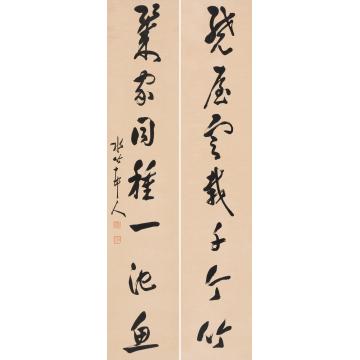 繞屋栽千个竹
家同種一池魚
水竹邨人